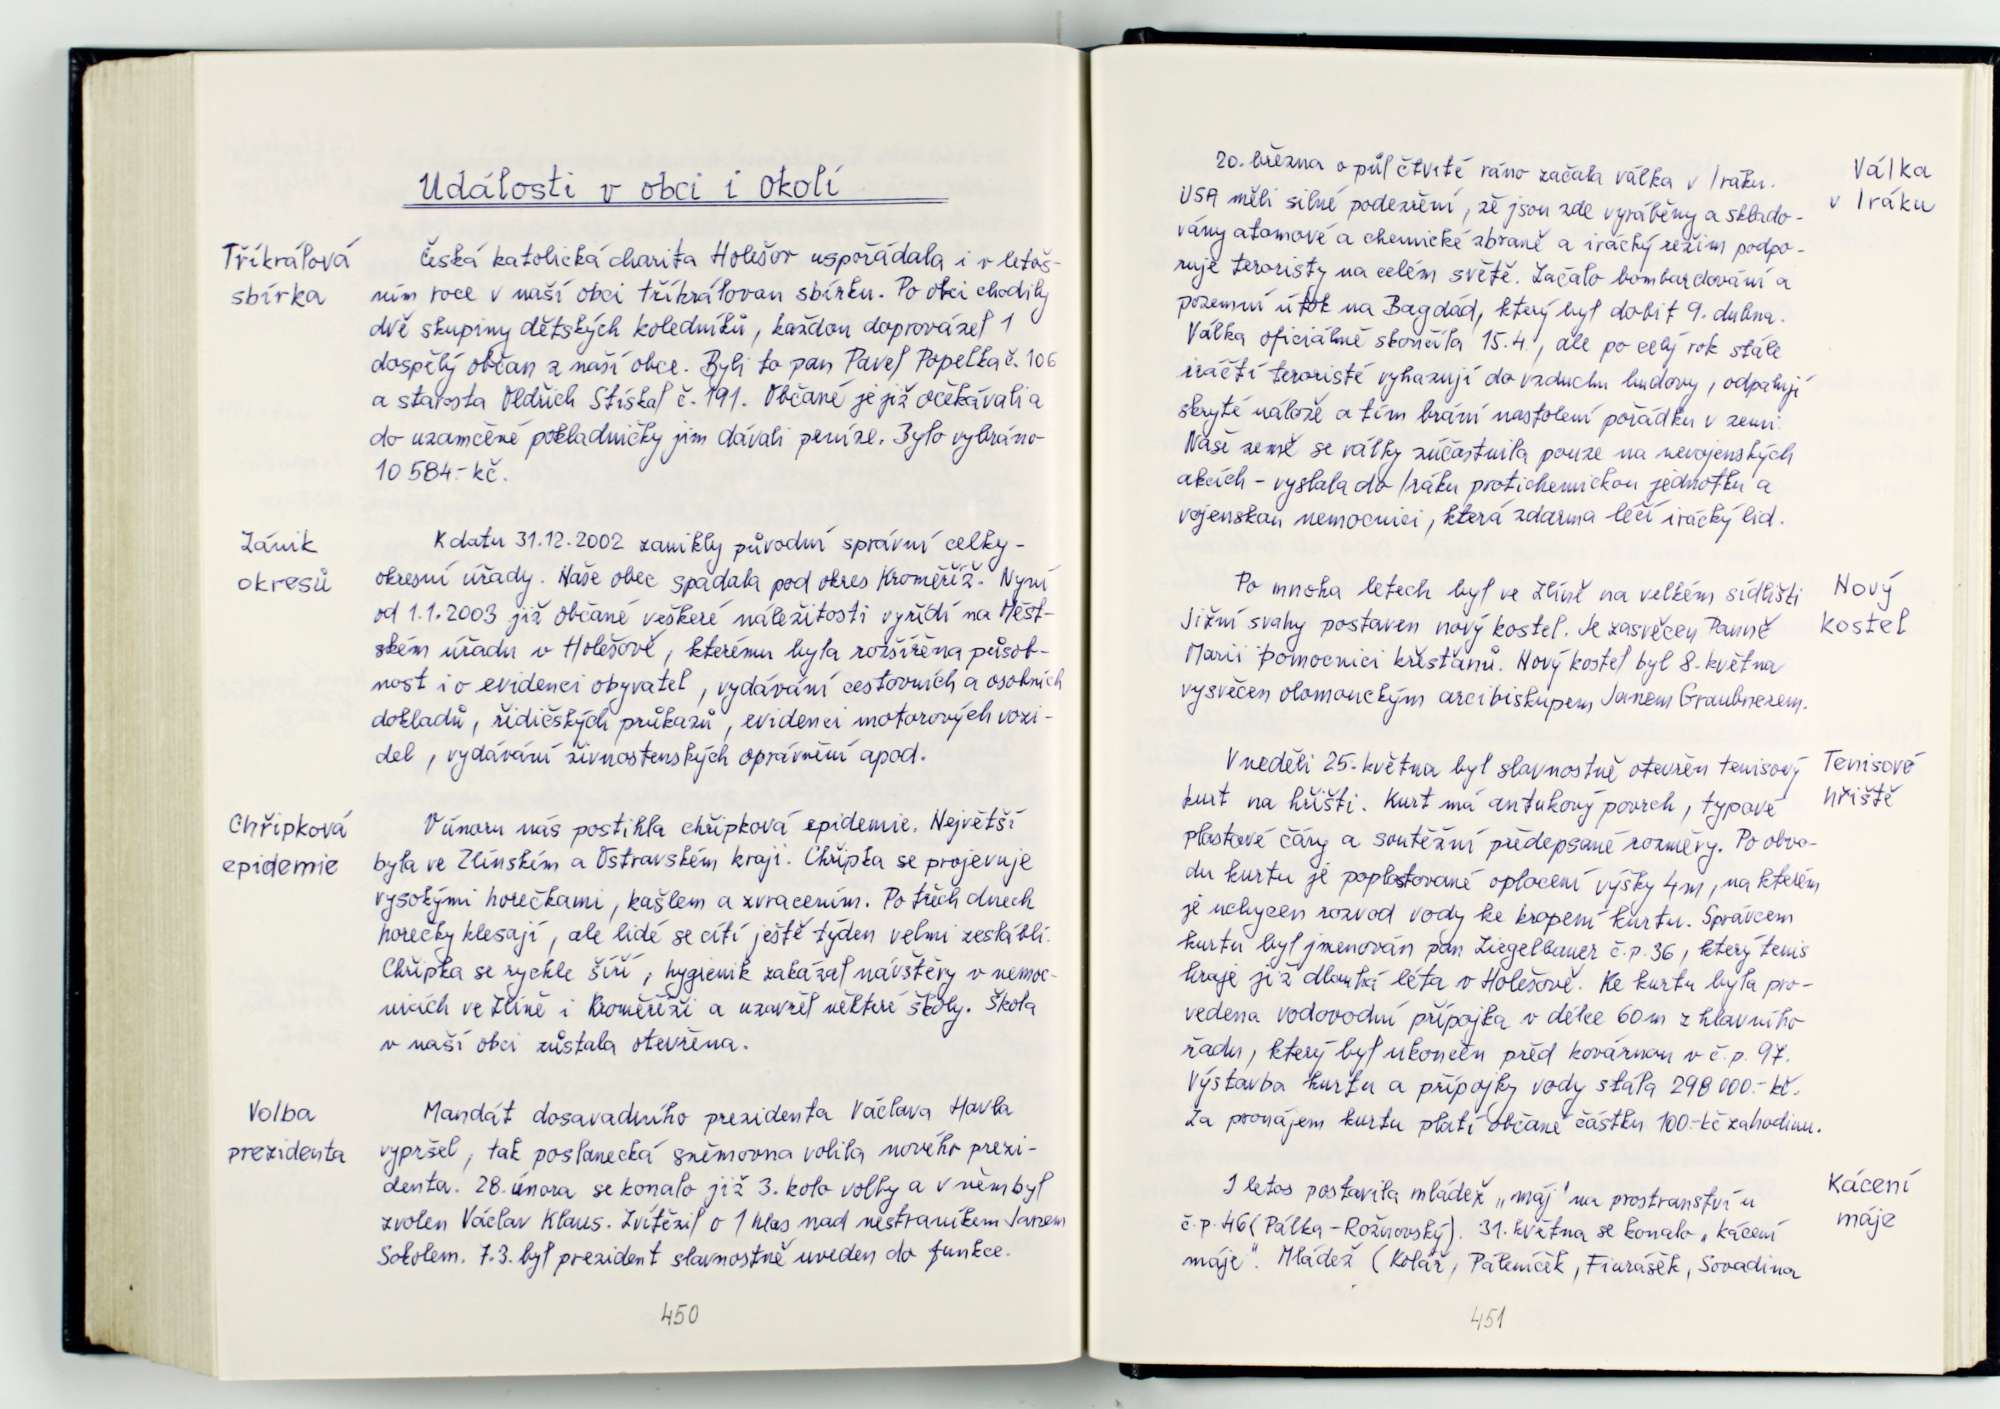 Události v obci i okolí
Tříkrálová
sbírka
Česká katolická charita Holešov uspořádala i v letoš-
ním roce v naší obci tříkrálovou sbírku. Po obci chodily
dvě skupiny dětských koledníků, každou doprovázel 1
dospělý občan z naší obce. Byli to pan Pavel Popelka č. 106
a starosta Oldřich Stískal č. 191. Občané je již očekávali a
do uzamčené pokladničky jim dávali peníze. Bylo vybráno
10 584.- kč.
Zánik
okresů
K datu 31.12.2002 zanikly původní správní celky -
okresní úřady. Naše obec spadala pod okres Kroměříž. Nyní
od 1.1.2003 již občané veškeré náležitosti vyřídí na Měst-
ském úřadu v Holešově, kterému byla rozšířena působ-
nost i o evidenci obyvatel, vydávání cestovních a osobních
dokladů, řidičských průkazů, evidenci motorových vozi-
del, vydávání živnostenských oprávnění apod.
Chřipková
epidemie
V únoru nás postihla chřipková epidemie. Největší
byla ve Zlínském a Ostravském kraji. Chřipka se projevuje
vysokými horečkami, kašlem a zvracením. Po třech dnech
horečky klesají, ale lidé se cítí ještě týden velmi zesláblí.
Chřipka se rychle šíří, hygienik zakázal návštěvy v nemoc-
nicích ve Zlíně i Kroměříži a uzavřel některé školy. Škola
v naší obci zůstala otevřena.
Volba
prezidenta
Mandát dosavadního prezidenta Václava Havla
vypršel, tak poslanecká sněmovna volila nového prezi-
denta. 28. února se konalo již 3. kolo volby a v něm byl
zvolen Václav Klaus. Zvítězil o 1 hlas nad nestraníkem Janem
Sokolem. 7.3. byl prezident slavnostně uveden do funkce.
450
20. března o půl čtvrté ráno začala válka v Iráku.
USA měli silné podezření, že jsou zde vyráběny a sklado-
vány atomové a chemické zbraně a irácký režim podpo-
ruje teroristy na celém světě. Začalo bombardování a
pozemní útok na Bagdád, který byl dobit 9. dubna.
Válka oficiálně skončila 15.4., ale po celý rok stále
iráčtí teroristé vyhazují do vzduchu budovy, odpalují
skryté nálože a tím brání nastolení pořádku v zemi.
Naše země se války zúčastnila pouze na nevojenských
akcích - vyslala do Iráku protichemickou jednotku a
vojenskou nemocnici, která zdarma léčí irácký lid.
Válka
v Iráku
Po mnoha letech byl ve Zlíně na velkém sídlišti
Jižní svahy postaven nový kostel. Je zasvěcen Panně
Marii Pomocnici křesťanů. Nový kostel byl 8. května
vysvěcen olomouckým arcibiskupem Janem Graubnerem.
Nový
kostel
V neděli 25. května byl slavnostně otevřen tenisový
kurt na hřišti. Kurt má antukový povrch, typové
plastové čáry a soutěžní předepsané rozměry. Po obvo-
du kurtu je poplastované oplocení výšky 4 m, na kterém
je uchycen rozvod vody ke kropení kurtu. Správcem
kurtu byl jmenován pan Ziegelbauer č.p. 36, který tenis
hraje již dlouhá léta v Holešově. Ke kurtu byla pro-
vedena vodovodní přípojka v délce 60 m z hlavního
řadu, který byl ukončen před kovárnou v č.p. 97.
Výstavba kurtu a přípojky vody stála 298 000.- kč.
Za pronájem kurtu platí občané částku 100.- kč za hodinu.
Tenisové
hřiště
I letos postavila mládež „máj" na prostranství u
č.p. 46 (Pálka - Rožnovský). 31. května se konalo „kácení
máje". Mládež (Kolář, Páleníček, Fiurášek, Sovadina
Kácení
máje
451